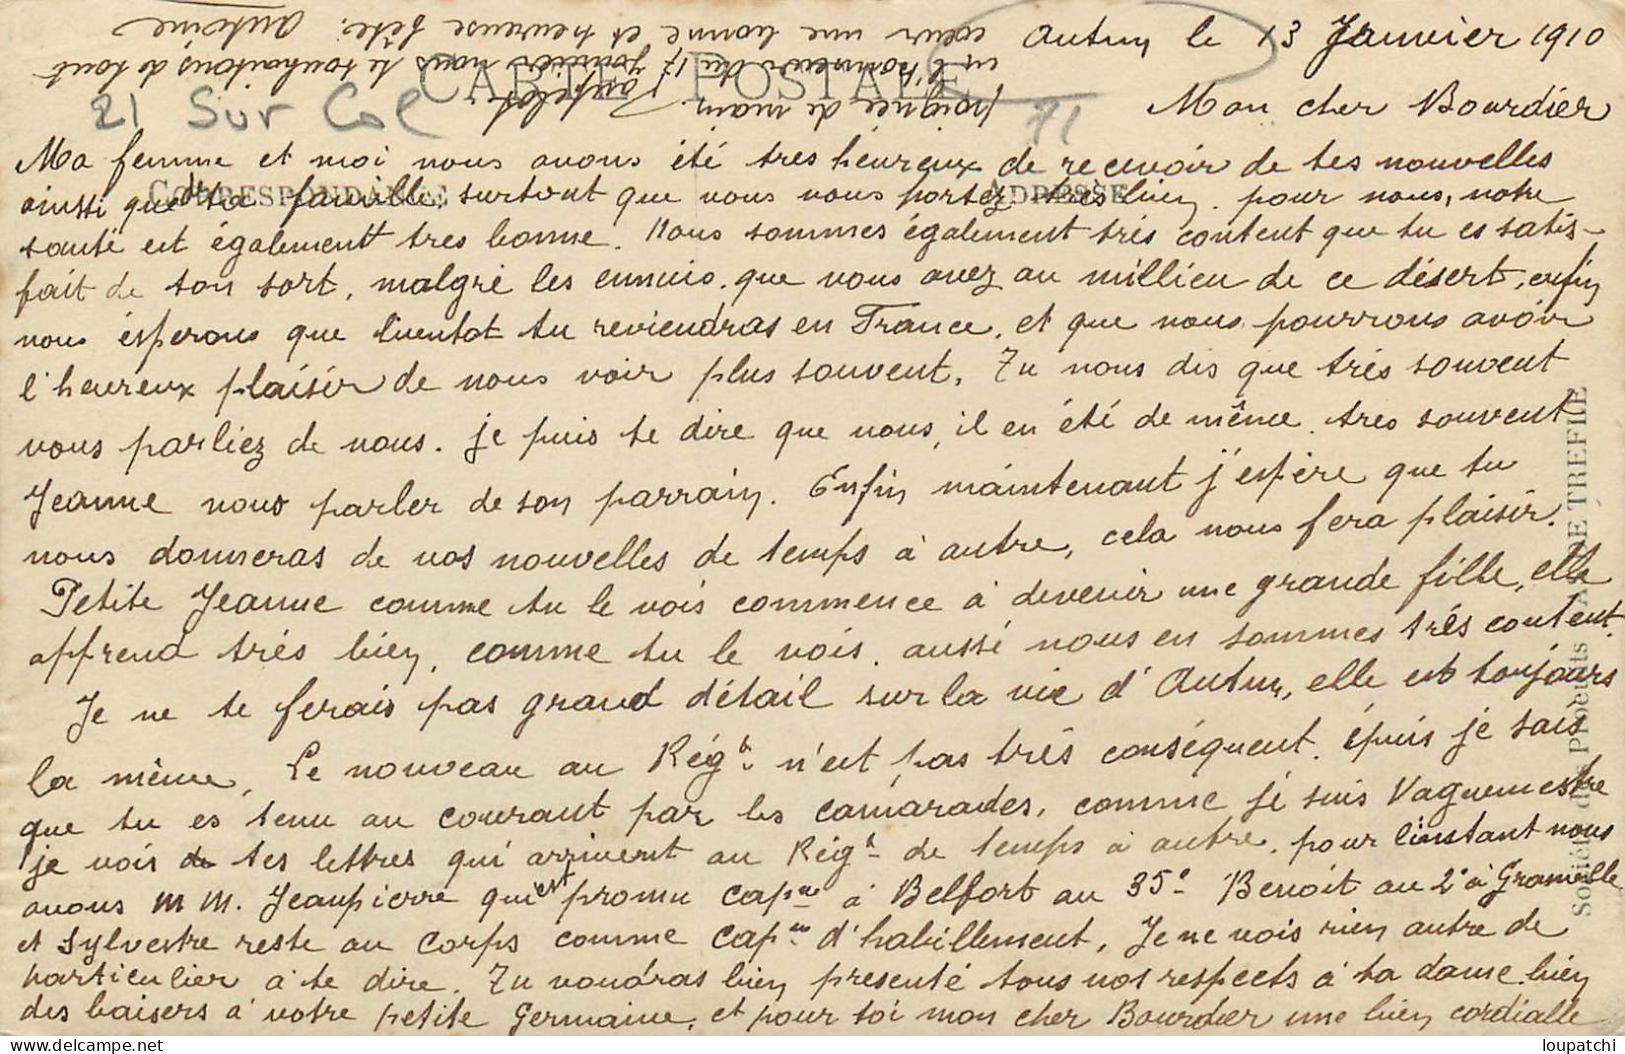 Autun le 13 Janvier 1910
Mon cher Bourdier
Ma femme et moi nous avons été très heureux de recevoir de tes nouvelles
ainssi que de ta famille, surtout que vous vous portez très bien. pour nous, notre
santé est également très bonne. Nous sommes également très content que tu es satis-
fait de ton sort, malgré les ennuis que vous avez au millieu de ce désert, enfin
nous ésperons que bientot tu reviendras en France, et que nous pourrons avoir
l'heureux plaisir de nous voir plus souvent. Tu nous dis que très souvent
vous parliez de nous. je puis te dire que nous, il en été de même, très souvent
Jeanne nous parler de son parrain. Enfin maintenant j'espère que tu
nous donneras de vos nouvelles de temps à autre, cela nous fera plaisir.
Petite Jeanne comme tu le vois commence à devenir une grande fille, elle
apprend très bien, comme tu le vois. aussi nous en sommes très content.
Je ne te ferais pas grand détail sur la vie d'Autun, elle est toujours
la même, Le nouveau au Régt n'est pas très conséquent. épuis je sais
que tu es tenu au courant par les camarades, comme je suis Vaguemestre
je vois de tes lettres qui arrivent au Régt de temps à autre. pour l'instant nous
avons M M. Jeanpierre qui est promu capne à Belfort au 35e Benoit au 2e à Granville
et Sylvestre reste au corps comme capne d'habillement, Je ne vois rien autre de
particulier à te dire. Tu voudras bien presenté tous nos respects à ta dame. bien
des baisers à votre petite Germaine. et pour toi mon cher Bourdier une bien cordialle
poignée de main
en l'honneur du 17 Janvier nous te souhaitons de tout
cœur une bonne et heureuse fête. Antoine
CARTE POSTALE
CORRESPONDANCE
ADRESSE
21 Sur Col
71
loupatchi